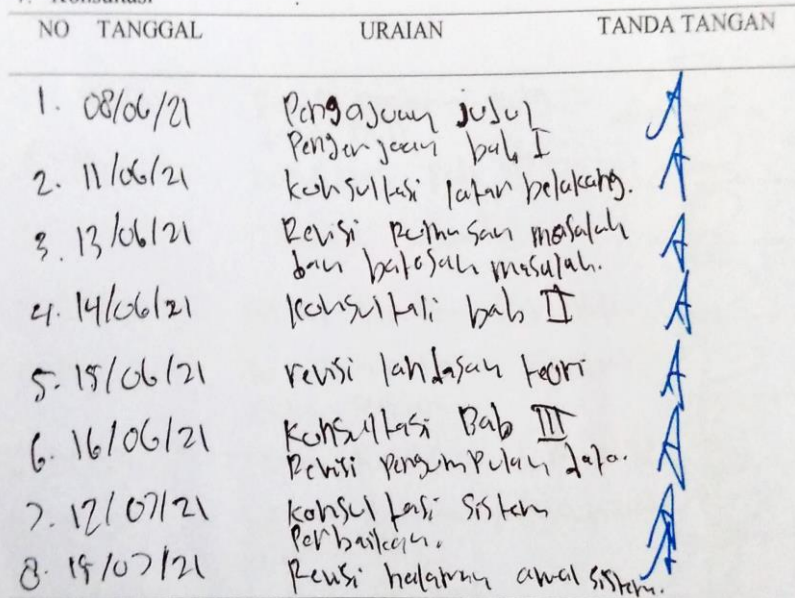 Konsultasi
NO TANGGAL URAIAN TANDA TANGAN
1. 08/06/21 Pengajuan judul
Pengerjaan bab I
2. 11/06/21 konsultasi latar belakang.
3. 13/06/21 Revisi rumusan masalah
dan batasan masalah.
4. 14/06/21 konsultasi bab II
5. 15/06/21 revisi landasan teori
6. 16/06/21 konsultasi Bab III
Revisi pengumpulan data.
7. 12/07/21 konsultasi sistem
Perbaikan.
8. 15/07/21 Revisi halaman awal sistem.